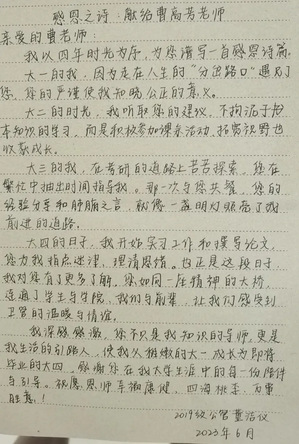 感恩之诗：献给曹高芳老师
亲爱的曹老师：
我以四年时光为序，为您谱写一首感恩诗篇。
大一的我，因为走在人生的“分岔路口”遇见了
您，您的严谨使我知晓公正的意义。
大二的时光，我听取您的建议，不拘泥于书
本知识的学习，而是积极参加课余活动，拓宽视野也
收获成长。
大三的我，在考研的道路上苦苦探索，您在
繁忙中抽出时间指导我。那一次与您共餐，您的
经验分享和肺腑之言，就像一盏明灯照亮了我
前进的道路。
大四的日子，我开始实习工作和撰写论文，
您为我指点迷津，理清思绪。也正是这段日子
我对您有了更多了解，您如同一座精神的大桥，
连通了学生与学院，我们与前辈，让我们感受到
卫管的温暖与情谊。
我深感感激，您不只是我知识的导师，更是
我生活的引路人，使我从稚嫩的大一成长为即将
毕业的大四。感谢您在我大学生涯中的每一份陪伴
与引导。祝愿恩师幸福康健，四海桃李，万事
胜意！
2019级公管董浩仪
2023年6月